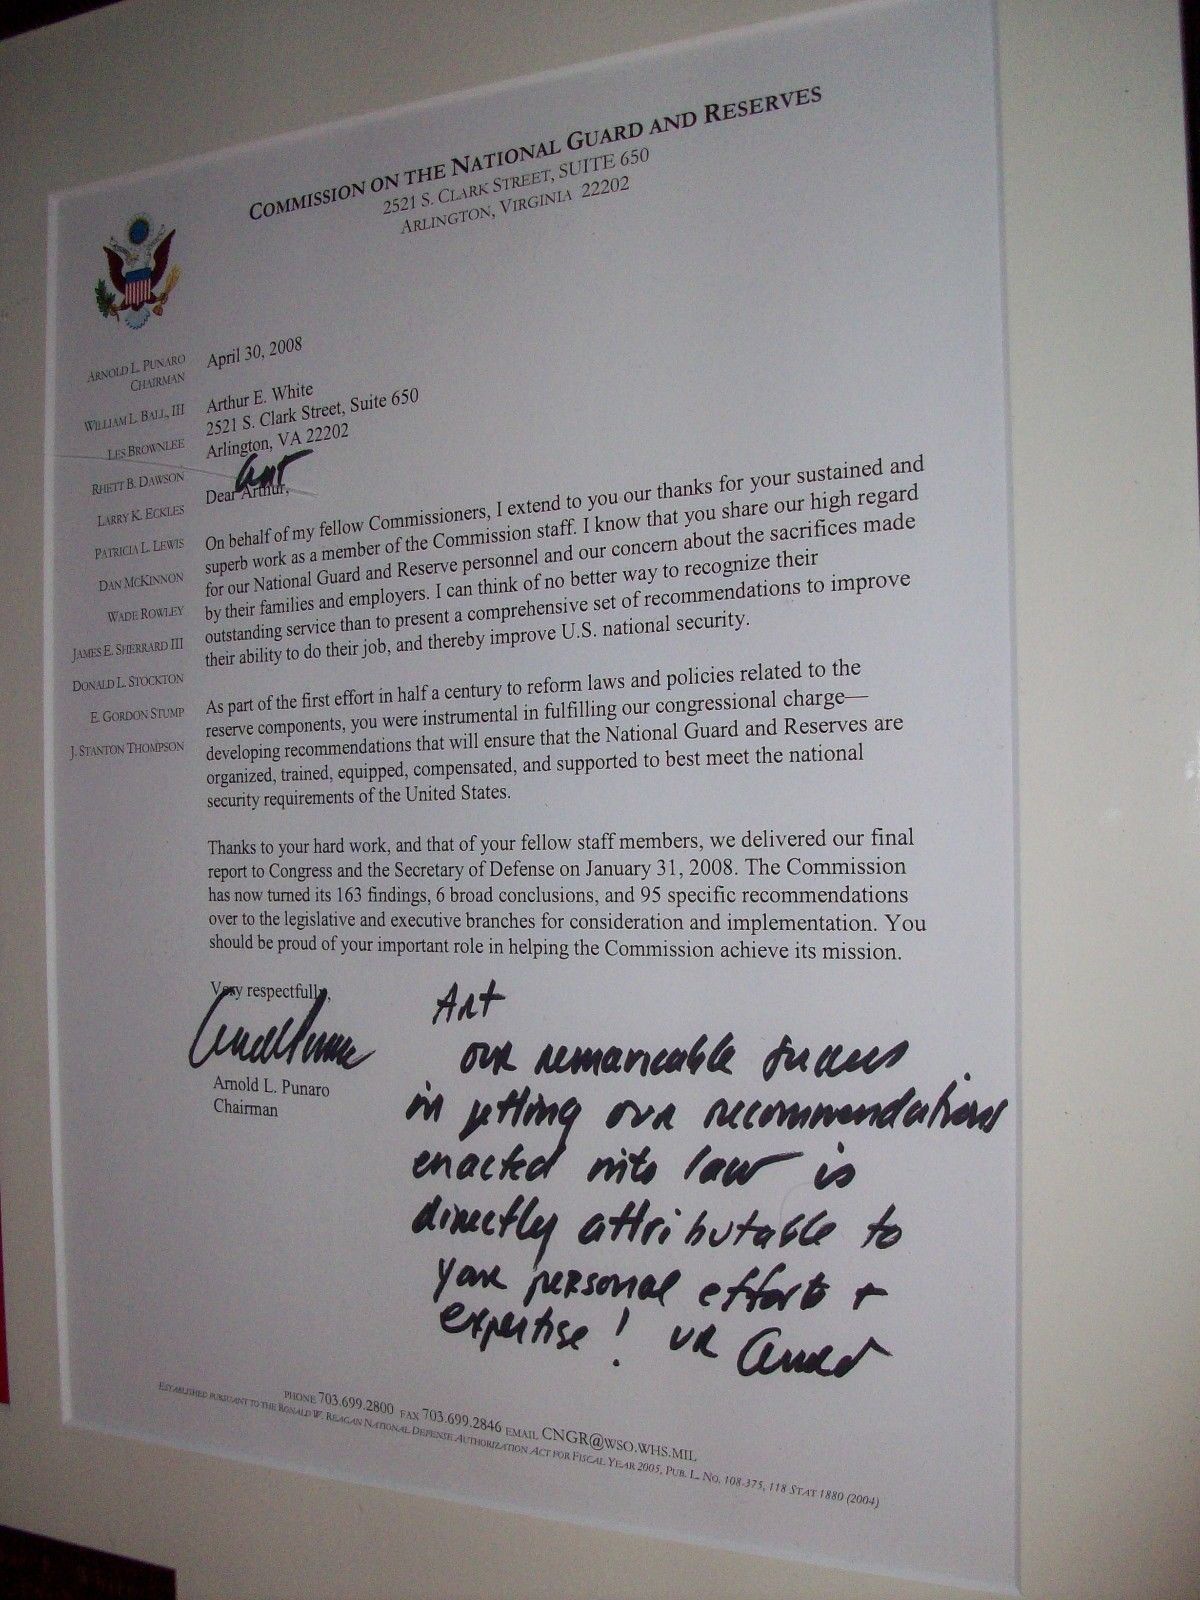 COMMISSION ON THE NATIONAL GUARD AND RESERVES
2521 S. CLARK STREET, SUITE 650
ARLINGTON, VIRGINIA 22202
ARNOLD L. PUNARO
CHAIRMAN
WILLIAM L. BALL, III
LES BROWNLEE
RHETT B. DAWSON
LARRY K. ECKLES
PATRICIA L. LEWIS
DAN MCKINNON
WADE ROWLEY
JAMES E. SHERRARD III
DONALD L. STOCKTON
E. GORDON STUMP
J. STANTON THOMPSON
April 30, 2008
Arthur E. White
2521 S. Clark Street, Suite 650
Arlington, VA 22202
Art
Dear Arthur,
On behalf of my fellow Commissioners, I extend to you our thanks for your sustained and
superb work as a member of the Commission staff. I know that you share our high regard
for our National Guard and Reserve personnel and our concern about the sacrifices made
by their families and employers. I can think of no better way to recognize their
outstanding service than to present a comprehensive set of recommendations to improve
their ability to do their job, and thereby improve U.S. national security.
As part of the first effort in half a century to reform laws and policies related to the
reserve components, you were instrumental in fulfilling our congressional charge—
developing recommendations that will ensure that the National Guard and Reserves are
organized, trained, equipped, compensated, and supported to best meet the national
security requirements of the United States.
Thanks to your hard work, and that of your fellow staff members, we delivered our final
report to Congress and the Secretary of Defense on January 31, 2008. The Commission
has now turned its 163 findings, 6 broad conclusions, and 95 specific recommendations
over to the legislative and executive branches for consideration and implementation. You
should be proud of your important role in helping the Commission achieve its mission.
Very respectfully,
Arnold L. Punaro
Chairman
Art
our remarkable success
in getting our recommendations
enacted into law is
directly attributable to
your personal effort +
expertise! VR Arnold
PHONE 703.699.2800 FAX 703.699.2846 EMAIL CNGR@WSO.WHS.MIL
ESTABLISHED PURSUANT TO THE RONALD W. REAGAN NATIONAL DEFENSE AUTHORIZATION ACT FOR FISCAL YEAR 2005, PUB. L. NO. 108-375, 118 STAT 1880 (2004)